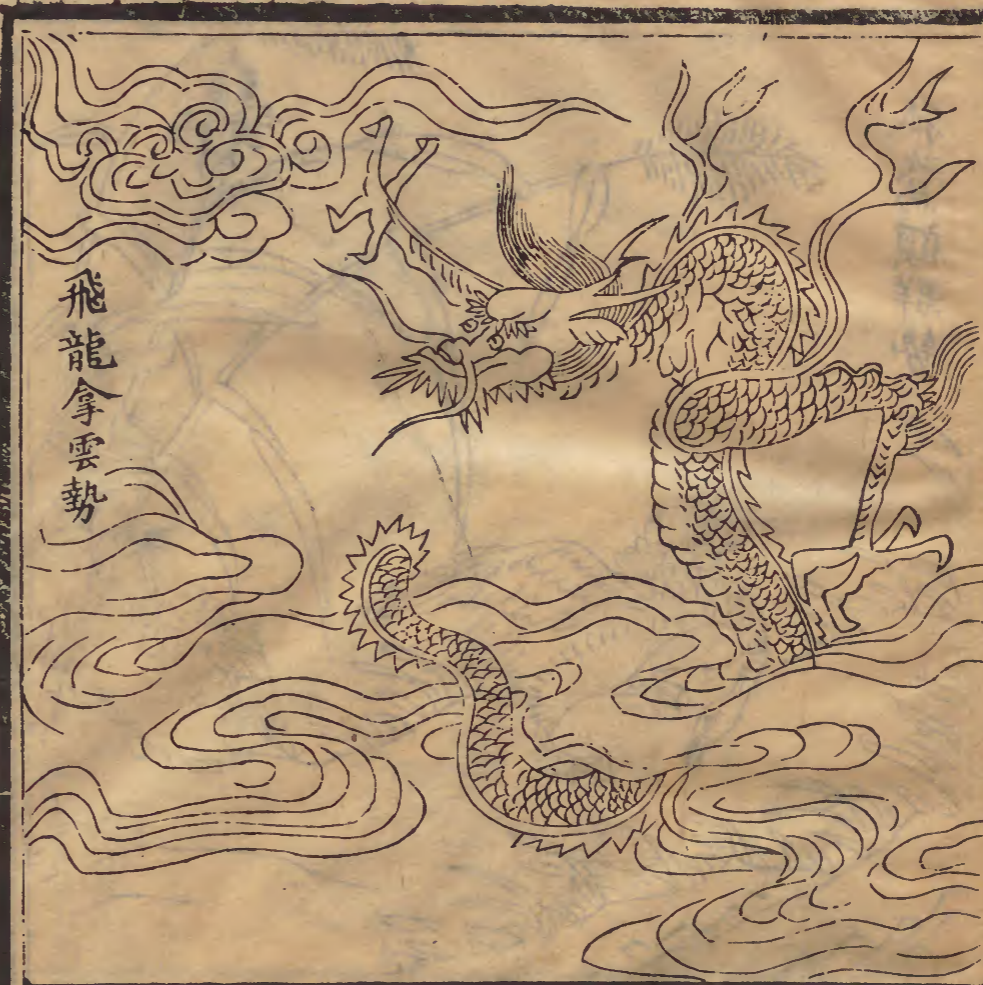 飛龍拿雲勢